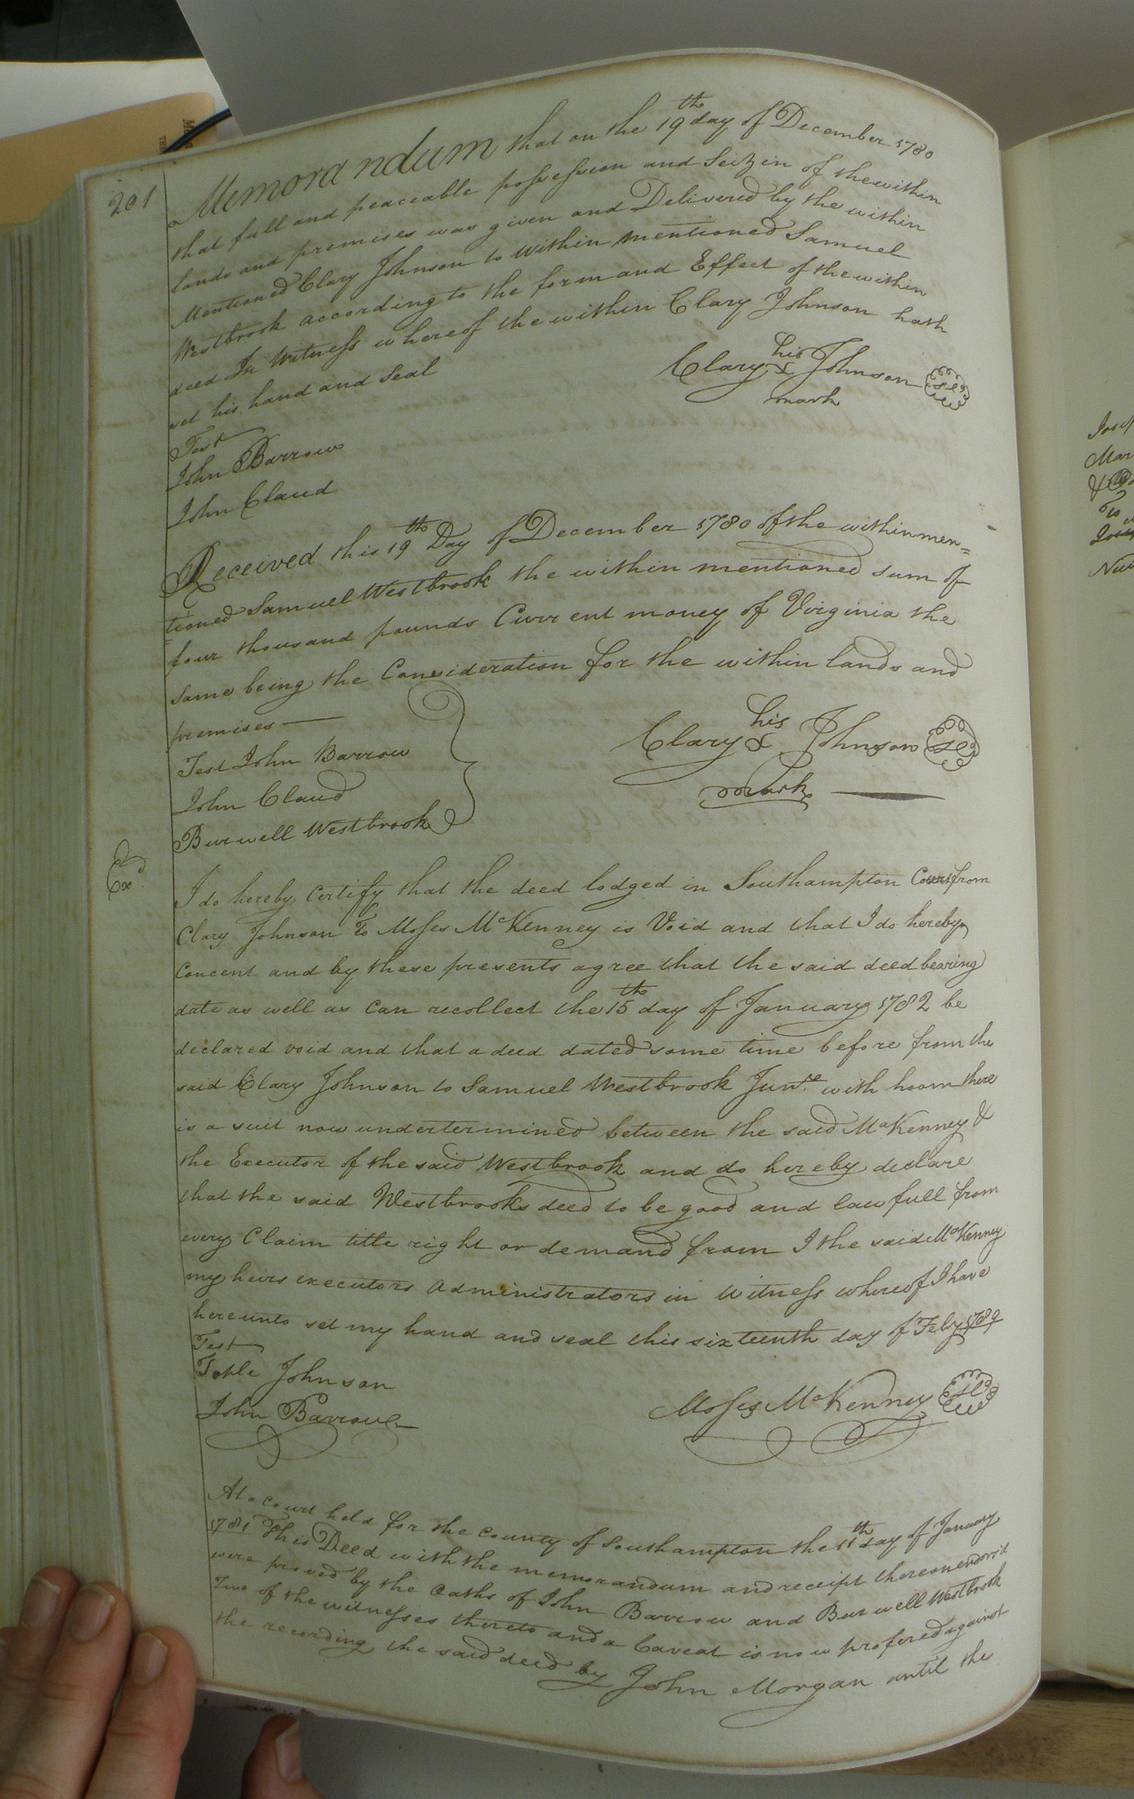 201
Memorandum that on the 19th day of December 1780
that full and peaceable possession and Seizen of the within
lands and premises was given and Delivered by the within
Mentioned Clary Johnson to within mentioned Samuel
Westbrook according to the form and Effect of the within
deed In Witness whereof the within Clary Johnson hath
set his hand and Seal
Clary his X mark Johnson
Test
John Barrow
John Claud
Received this 19th Day of December 1780 of the within men=
tioned Samuel Westbrook the within mentioned sum of
four thousand pounds Current money of Virginia the
same being the Consideration for the within lands and
premises
Clary his X mark Johnson
Test John Barrow
John Claud
Burwell Westbrook
Exd.
I do hereby Certify that the deed lodged in Southampton Court from
Clary Johnson To Moses McKenney is Void and that I do hereby
Concent and by these presents agree that the said deed bearing
date as well as can recollect the 15th day of January 1782 be
declared void and that a deed dated some time before from the
said Clary Johnson to Samuel Westbrook Junr. with hoom there
is a suit now undertermined between the said McKenney &
the Executor of the said Westbrook and do hereby declare
that the said Westbrooks deed to be good and lawfull from
every Claim title right or demand from I the said McKenney
my heirs executors administrators in Witness whereof I have
hereunto set my hand and seal this sixteenth day of Feby 1789
Test
Johnson
John Barrow
Moses McKenney
At a court held for the County of Southampton the 11th day of January
1781 This Deed with the memorandum and receipt thereon endors'd
were proved by the Oaths of John Barrow and Burwell Westbrook
Two of the witnesses thereto and a Caveat is now profered against
the recording the said deed by John Morgan until the